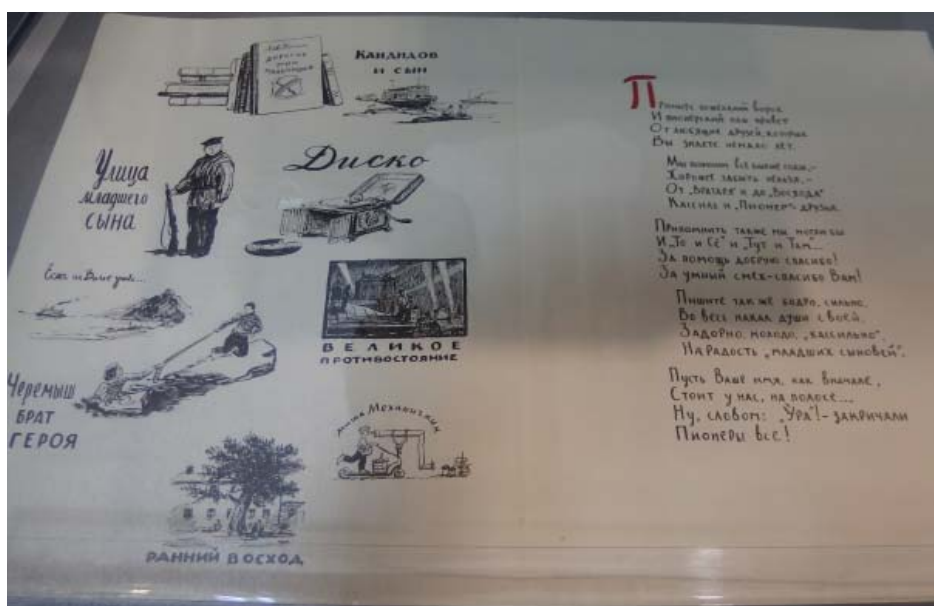 Кандидов
и сын
Улица
младшего
сына
Диско
Есть на Волге утёс...
ВЕЛИКОЕ
ПРОТИВОСТОЯНИЕ
Черемыш
БРАТ
ГЕРОЯ
Механишкин
РАННИЙ ВОСХОД
Примите
И пионерский наш привет
От любящих друзей, которых
Вы знаете немало лет.
Мы помним все
Хорошее забыть нельзя,-
От „Вратаря" и до „Восхода"
Кассиль и „Пионер"- друзья.
Припомнить также мы могли бы
И „То и Сё" и „Тут и Там"...
За помощь добрую спасибо!
За умный смех-спасибо Вам!
Пишите так же бодро, сильно,
Во весь накал души своей.
Задорно, молодо, „кассильно",
На радость „младших сыновей".
Пусть Ваше имя, как вначале,
Стоит у нас, на полосе...
Ну, словом: „Ура"!- закричали
Пионеры все!